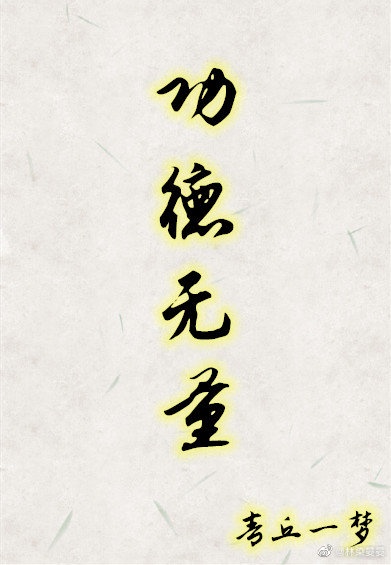 功
德
无
量
青丘一梦